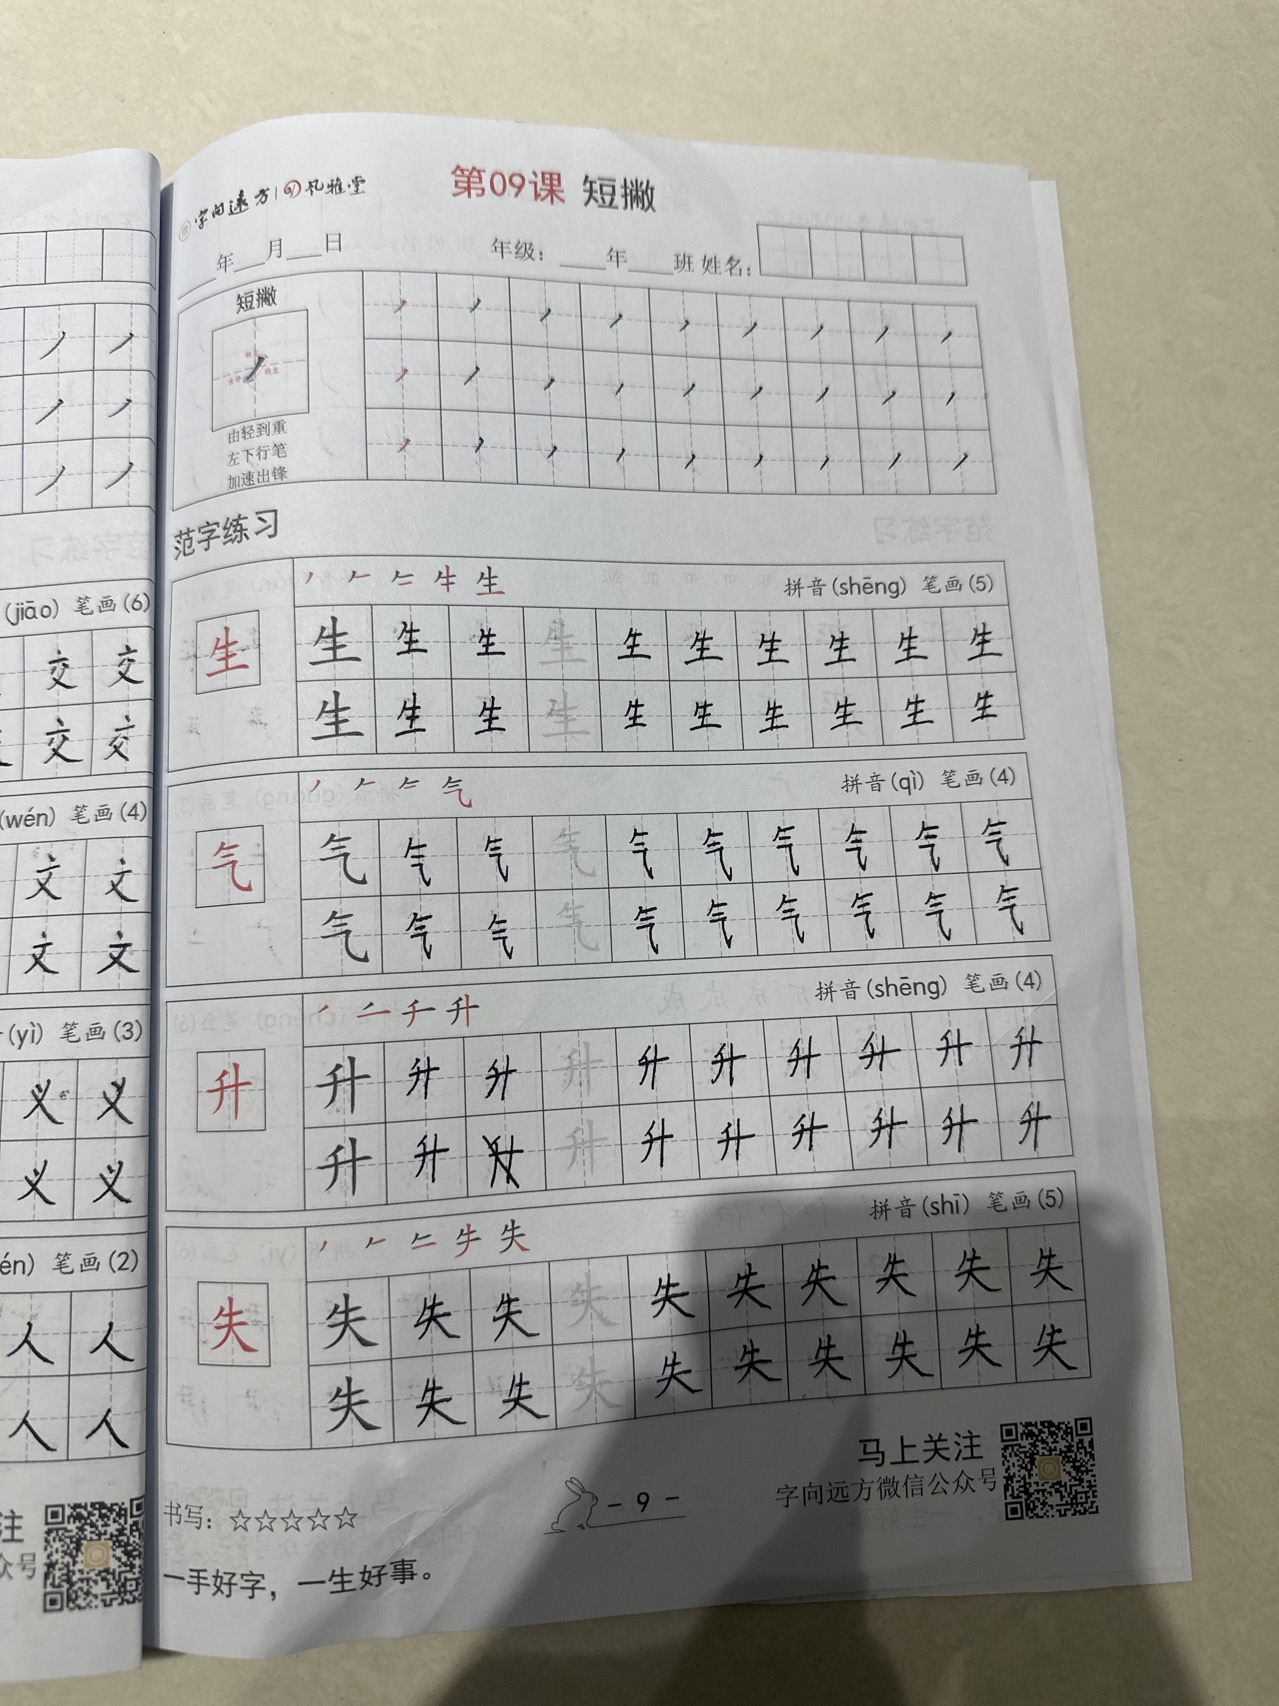 字向远方 凡雅堂
第09课 短撇
年 月 日 年级： 年 班 姓名：
短撇
由轻到重
左下行笔
加速出锋
范字练习
生 拼音(shēng) 笔画(5)
生 生 生 生 生 生 生 生 生 生 生
生 生 生 生 生 生 生 生 生 生
气 拼音(qì) 笔画(4)
气 气 气 气 气 气 气 气 气 气 气
气 气 气 气 气 气 气 气 气 气
升 拼音(shēng) 笔画(4)
升 升 升 升 升 升 升 升 升 升 升
升 升 升 升 升 升 升 升 升
失 拼音(shī) 笔画(5)
失 失 失 失 失 失 失 失 失 失 失
失 失 失 失 失 失 失 失 失 失
马上关注
字向远方微信公众号
书写：☆☆☆☆☆
- 9 -
一手好字，一生好事。
(jiāo) 笔画(6)
交 交
交 交
(wén) 笔画(4)
文 文
文 文
(yì) 笔画(3)
义 义
义 义
én) 笔画(2)
人 人
人 人
注
众号